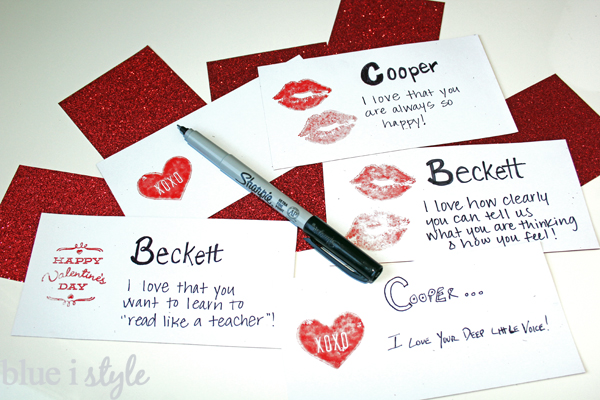 Cooper
I love that you
are always so
happy!
XOXO
Sharpie
Beckett
I love how clearly
you can tell us
what you are thinking
& how you feel!
HAPPY
Valentine's
DAY
Beckett
I love that you
want to learn to
"read like a teacher"!
COOPER...
XOXO
I LOVE YOUR DEEP LITTLE VOICE!
blue i style